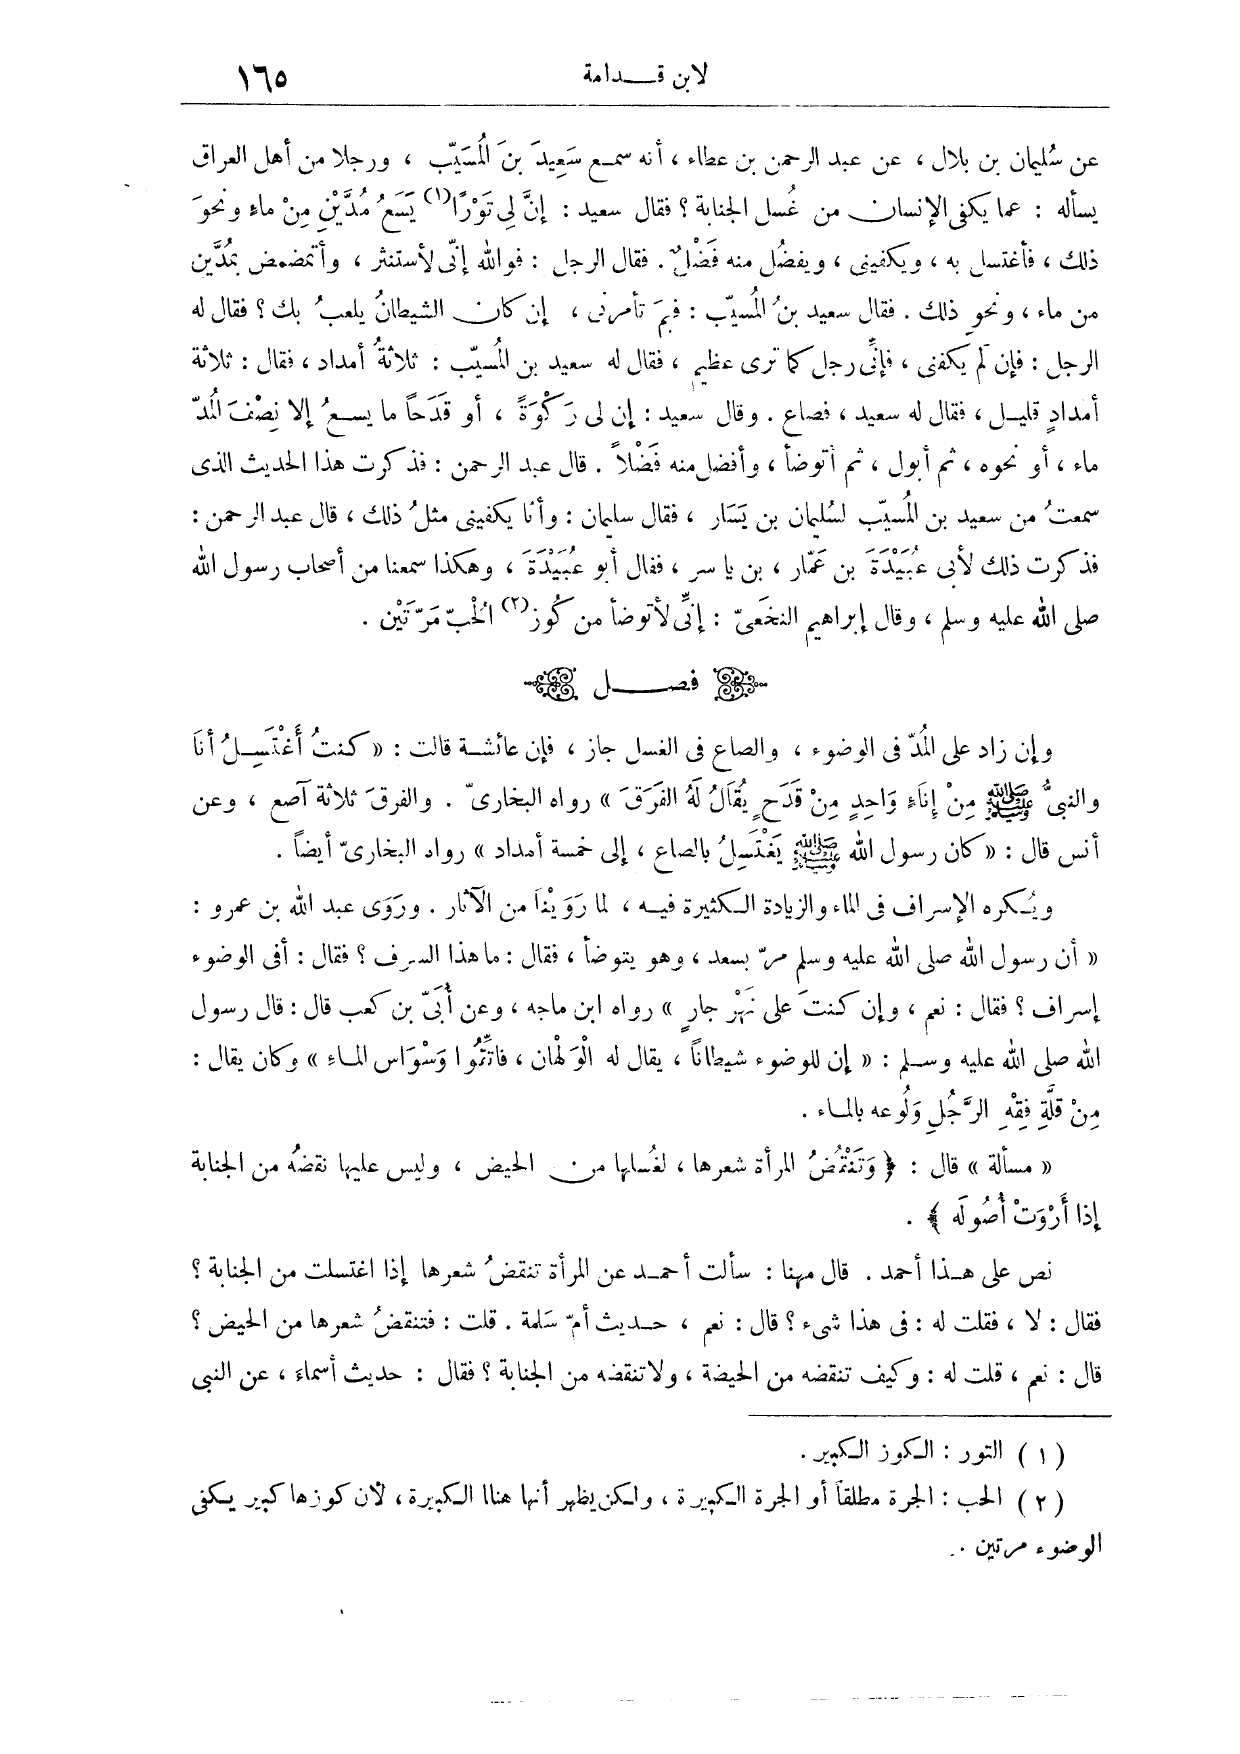 لابن قدامة ١٦٥
عن سُليمان بن بلال ، عن عبد الرحمن بن عطاء ، أنه سمع سَعِيدَ بنَ المُسَيّب ، ورجلا من أهل العراق
يسأله : عما يكفى الإنسان من غُسل الجنابة ؟ فقال سعيد : إنَّ لِى تَوْرًا(١) يَسَعُ مُدَّيْنِ مِنْ ماءٍ ونحوَ
ذلك ، فأغتسل به ، ويكفينى ، ويفضُل منه فَضْلٌ . فقال الرجل : فوالله إنّى لأستنثر ، وأتمضمض بمُدَّين
من ماء ، ونحوِ ذلك . فقال سعيد بنُ المُسيّب : فبِمَ تأمرنى ، إن كان الشيطانُ يلعبُ بك ؟ فقال له
الرجل : فإن لم يكفنى ، فإنِّى رجل كما ترى عظيم ، فقال له سعيد بن المُسيّب : ثلاثةُ أمداد ، فقال : ثلاثة
أمدادٍ قليل ، فقال له سعيد ، فصاع . وقال سعيد : إن لى رَكْوَةً ، أو قَدَحاً ما يسعُ إلا نِصْفَ المُدّ
ماء ، أو نحوه ، ثم أبول ، ثم أتوضأ ، وأفضل منه فَضْلاً . قال عبد الرحمن : فذكرت هذا الحديث الذى
سمعتُ من سعيد بن المُسيّب لسُليمان بن يَسَار ، فقال سليمان : وأنا يكفينى مثلُ ذلك ، قال عبد الرحمن :
فذكرت ذلك لأبى عُبَيْدَةَ بن عَمّار ، بن ياسر ، فقال أبو عُبَيْدَةَ ، وهكذا سمعنا من أصحاب رسول الله
صلى الله عليه وسلم ، وقال إبراهيم النخَعىّ : إنِّى لأتوضأ من كُوز(٢) الحُبّ مَرّتَيْن .
فصل
وإن زاد على المُدّ فى الوضوء ، والصاع فى الغسل جاز ، فإن عائشة قالت : « كنتُ أَغْتَسِلُ أنَا
والنبىُّ ﷺ مِنْ إنَاءٍ وَاحِدٍ مِنْ قَدَحٍ يُقَالُ لَهُ الفَرَقَ » رواه البخارىّ . والفرقَ ثلاثة آصع ، وعن
أنس قال : « كان رسول الله ﷺ يَغْتَسِلُ بالصاع ، إلى خمسة أمداد » رواد البخارىّ أيضاً .
ويُكره الإسراف فى الماء والزيادة الكثيرة فيه ، لما رَوَيْنَا من الآثار . ورَوَى عبد الله بن عمرو :
« أن رسول الله صلى الله عليه وسلم مرّ بسعد ، وهو يتوضأ ، فقال : ما هذا السرف ؟ فقال : أفى الوضوء
إسراف ؟ فقال : نعم ، وإن كنتَ على نَهْرٍ جارٍ » رواه ابن ماجه ، وعن أُبَىّ بن كعب قال : قال رسول
الله صلى الله عليه وسلم : « إن للوضوء شيطاناً ، يقال له الْوَلْهان ، فاتَّقُوا وَسْوَاس الماء » وكان يقال :
مِنْ قلَّةِ فِقْهِ الرَّجُلِ وَلُوعه بالماء .
« مسألة » قال : ﴿ وَتَنْقُضُ المرأة شعرها ، لغُسلها من الحيض ، وليس عليها نقضهُ من الجنابة
إذا أَرْوَتْ أُصُولَه ﴾ .
نص على هذا أحمد . قال مهنا : سألت أحمد عن المرأة تنقضُ شعرها إذا اغتسلت من الجنابة ؟
فقال : لا ، فقلت له : فى هذا شىء ؟ قال : نعم ، حديث أمّ سَلمة . قلت : فتنقضُ شعرها من الحيض ؟
قال : نعم ، قلت له : وكيف تنقضه من الحيضة ، ولا تنقضه من الجنابة ؟ فقال : حديث أسماءَ ، عن النبى
( ١ ) التور : الكوز الكبير .
( ٢ ) الحب : الجرة مطلقاً أو الجرة الكبيرة ، ولكن يظهر أنها هنا الكبيرة ، لان كوزها كبير يكفى
الوضوء مرتين .